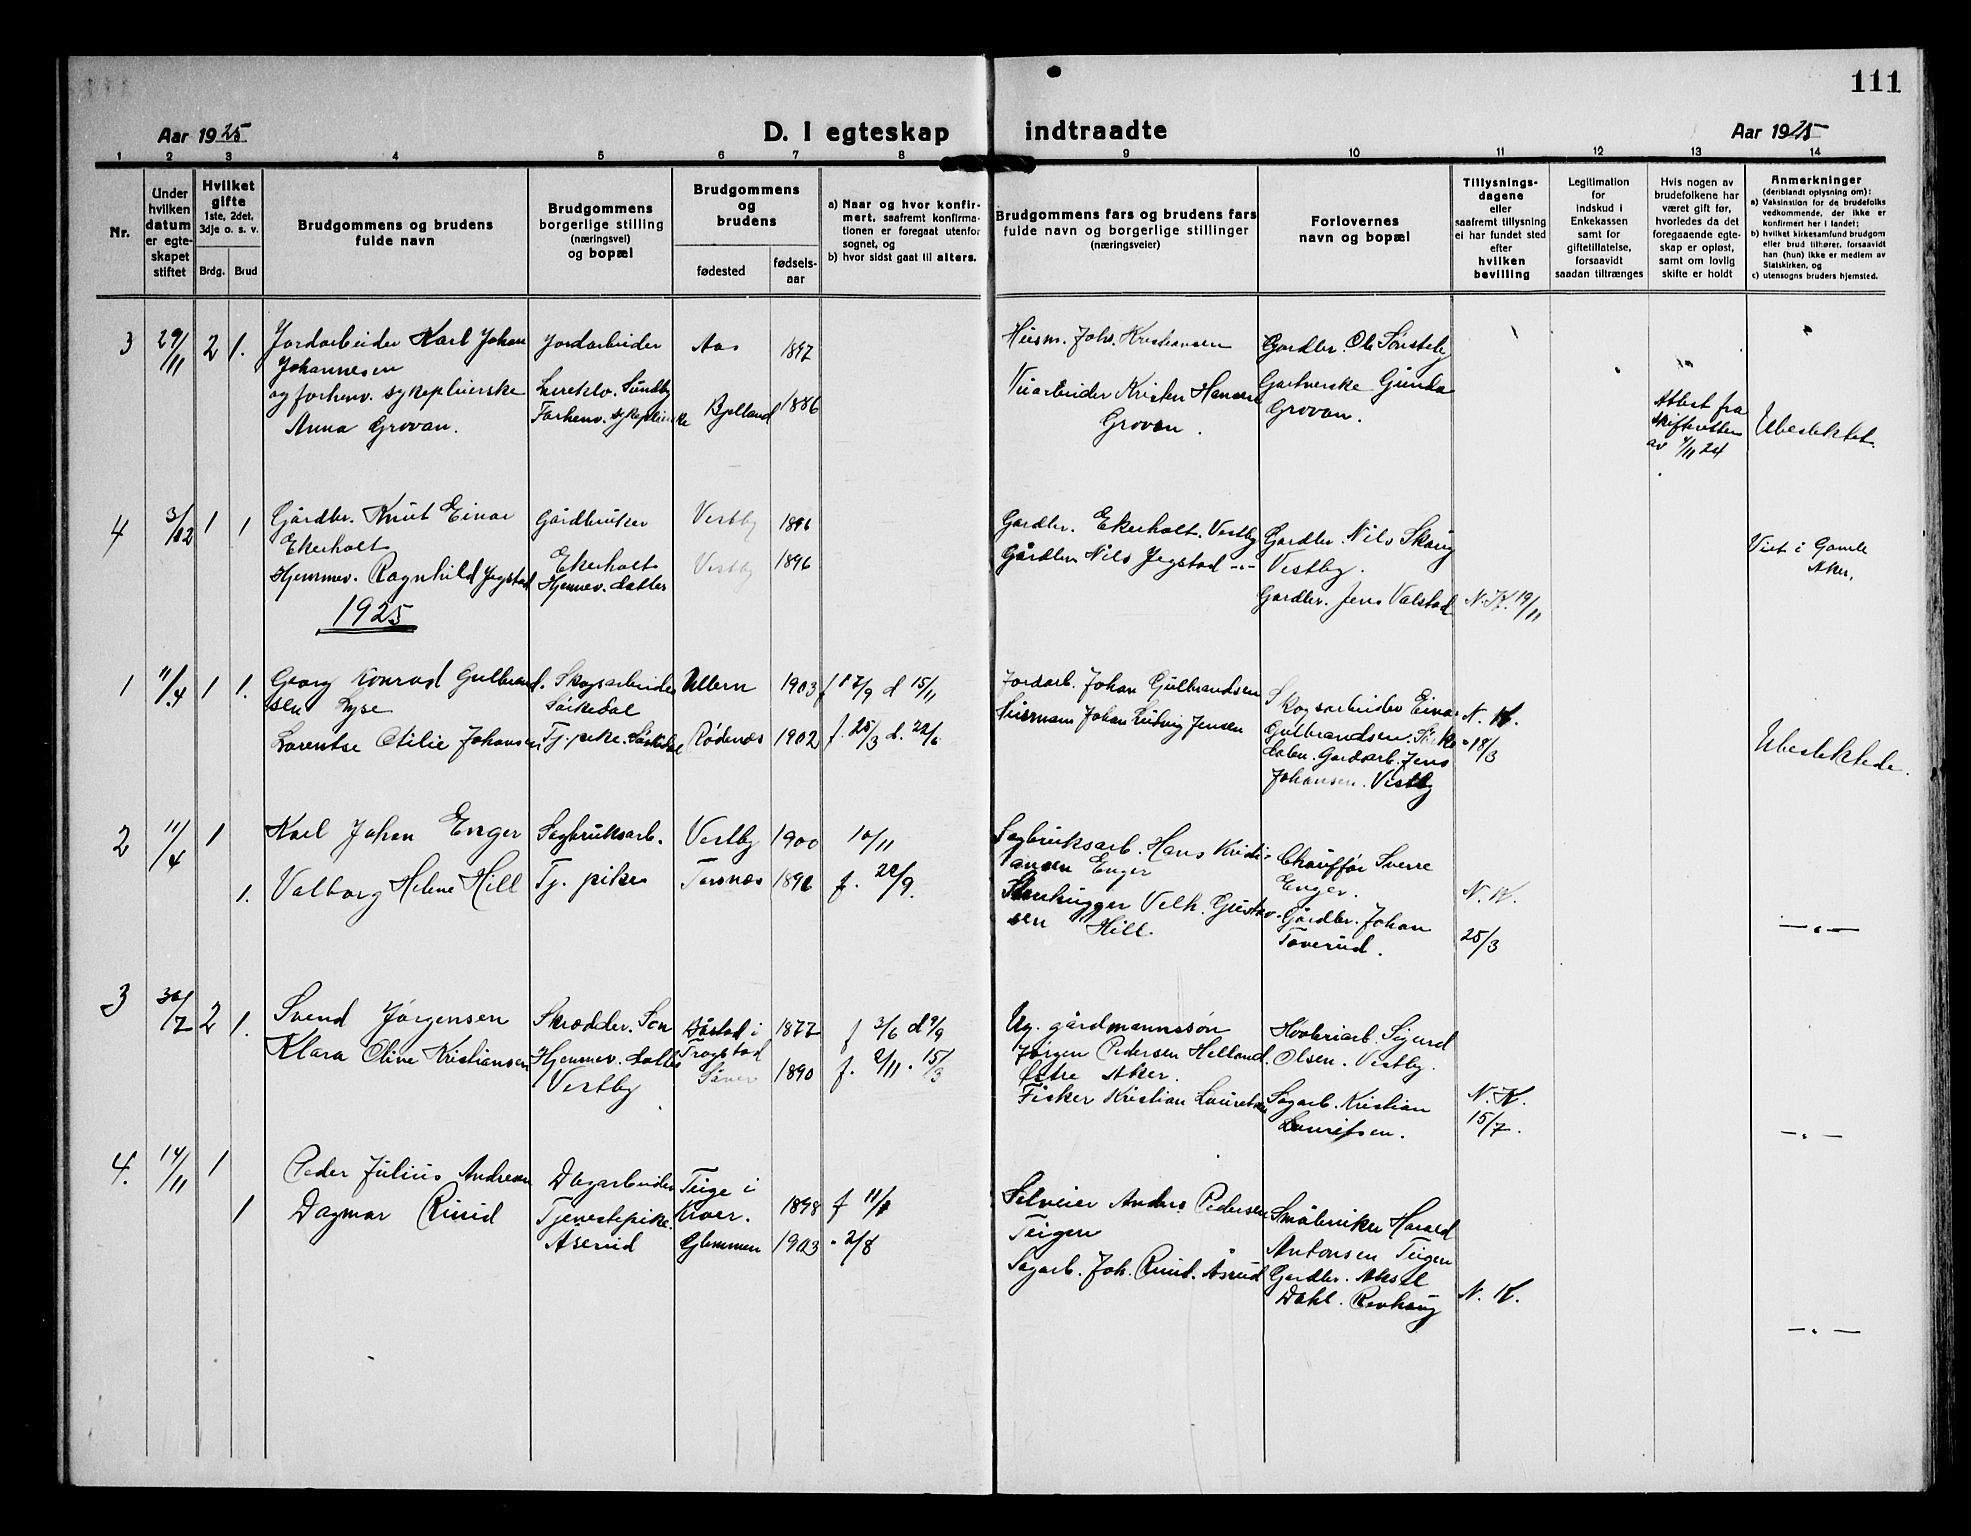 111
Aar 1925
D. I egteskap indtraadte
Aar 1925
1 2 3 4 5 6 7 8 9 10 11 12 13 14
Nr.
Under
hvilken
datum
er egte-
skapet
stiftet
Hvilket
gifte
1ste, 2det,
3dje o. s. v.
Brdg. Brud
Brudgommens og brudens
fulde navn
Brudgommens
borgerlige stilling
(næringsvei)
og bopæl
Brudgommens
og
brudens
fødested
fødsels-
aar
a) Naar og hvor konfir-
mert, saafremt konfirma-
tionen er foregaat utenfor
sognet, og
b) hvor sidst gaat til alters.
Brudgommens fars og brudens fars
fulde navn og borgerlige stillinger
(næringsveier)
Forlovernes
navn og bopæl
Tillysnings-
dagene
eller
saafremt tillysning
ei har fundet sted
efter
hvilken
bevilling
Legitimation
for
indskud i
Enkekassen
samt for
giftetillatelse,
forsaavidt
saadan tiltrænges
Hvis nogen av
brudefolkene har
været gift før,
hvorledes da det
foregaaende egte-
skap er opløst,
samt om lovlig
skifte er holdt
Anmerkninger
(deriblandt oplysning om):
a) Vaksination for de brudefolks
vedkommende, der ikke er
konfirmert her i landet;
b) hvilket kirkesamfund brudgom
eller brud tilhører, forsaavidt
han (hun) ikke er medlem av
Statskirken, og
c) utensogns bruders hjemsted.
3 29/11 2 1.
Jordarbeider Karl Johan
Johannesen
og forhenv. sykepleierske
Anna Grovan.
Jordarbeider
Sundby
Forhenv. sykepleierske
Aas 1897
Bjelland 1886
Husm. Johs. Kristiansen
Veiarbeider Kristen Hansen
Grovan.
Gardbr. Ole Sönsteby
Gartnerske Gunda
Grovan.
Attest fra
skifteretten
av 4/11 24
Ubeslektet.
4 3/12 1 1
Gårdbr. Knut Einar
Ekerholt
Hjemmev. Ragnhild Jegstad
Gårdbruker
Ekerholt
Hjemmev. datter
Vestby 1896
Vestby 1896
Gardbr. Ekerholt. Vestby
Gårdbr. Nils Jegstad -"-
Gardbr. Nils Skaug
Vestby.
Gardbr. Jens Valstad
N. K. 19/11
Viet i Gamle
Aker.
1925
1 11/4 1 1.
Georg Konrad Gulbrand-
sen Lyse
Lorentse Otilie Johansen
Skogsarbeider
Sörkedal
Tj. pike. Sörkedal
Ullern 1903 f 17/9 d 15/11
Rødenæs 1902 f. 25/3 d. 22/6
Jordarb. Johan Gulbrandsen
Johan Ludvig Jensen
Skogsarbeider Einar
Gulbrandsen. Sörke-
dalen. Gardarb. Jens
Johansen. Vestby
N. K.
18/3
Ubeslektede.
2 11/4 1
1.
Karl Johan Enger
Valborg Helene Hill
Sagbruksarb.
Tj. pike
Vestby 1900 10/11
Torsnæs f. 22/9.
Sagbruksarb. Hans Kristi-
ansen Enger
Stenhugger Vilh. Gustav-
sen Hill.
Chauffør Sverre
Enger.
Gårdbr. Johan
Toverud.
N. K.
25/3
— „ —
3 30/7 2 1.
Svend Jørgensen
Klara Oline Kristiansen
Skrædder. Son
Hjemmev. datter
Vestby
Båstad i
Trøgstad 1877 f 3/6 d 9/9
1890 f. 2/11. 15/3
Ug. gårdmannssøn
Jørgen Pedersen Helland.
Østre Aker.
Fisker Kristian Lauretsen
Høvleriarb. Sigurd
Olsen. Vestby.
Sagarb. Kristian
Lauritsen.
N. K.
15/7.
— „ —
4. 14/11 1
1
Peder Julius Andresen
Dagmar Ruud
Dagarbeider
Tjenestepike.
Aserud
Teige i
Kroer. 1898 f 11/1
Glemmen 1903 " 2/8
Selveier Anders Pedersen
Teigen
Sagarb. Joh. Ruud. Åsrud
Småbruker Harald
Antonsen Teigen
Gardbr. Aksel
Dahl. Revhaug
N. K.
— „ —